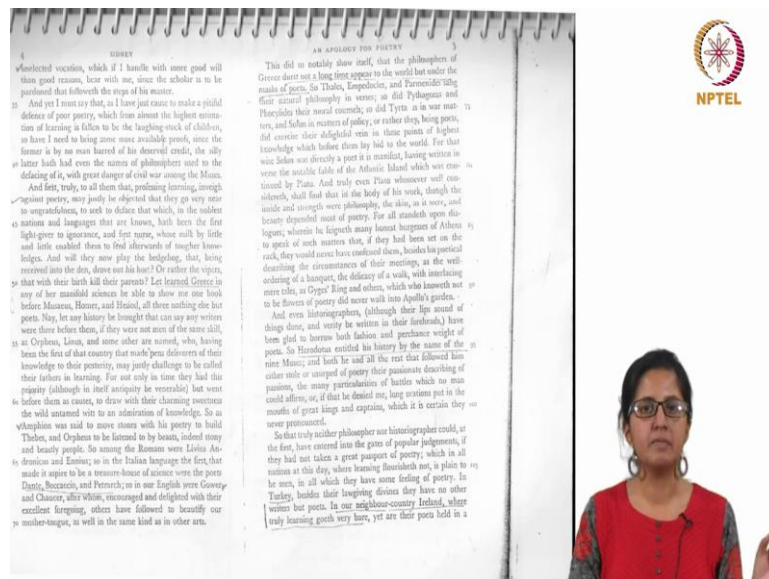 4 SIDNEY
unelected vocation, which if I handle with more good will
than good reasons, bear with me, since the scholar is to be
pardoned that followeth the steps of his master.
35 And yet I must say that, as I have just cause to make a pitiful
defence of poor poetry, which from almost the highest estima-
tion of learning is fallen to be the laughing-stock of children,
so have I need to bring some more available proofs, since the
former is by no man barred of his deserved credit, the silly
40 latter hath had even the names of philosophers used to the
defacing of it, with great danger of civil war among the Muses.
And first, truly, to all them that, professing learning, inveigh
against poetry, may justly be objected that they go very near
to ungratefulness, to seek to deface that which, in the noblest
45 nations and languages that are known, hath been the first
light-giver to ignorance, and first nurse, whose milk by little
and little enabled them to feed afterwards of tougher know-
ledges. And will they now play the hedgehog, that, being
received into the den, drove out his host? Or rather the vipers,
50 that with their birth kill their parents? Let learned Greece in
any of her manifold sciences be able to show me one book
before Musaeus, Homer, and Hesiod, all three nothing else but
poets. Nay, let any history be brought that can say any writers
were there before them, if they were not men of the same skill,
55 as Orpheus, Linus, and some other are named, who, having
been the first of that country that made pens deliverers of their
knowledge to their posterity, may justly challenge to be called
their fathers in learning. For not only in time they had this
priority (although in itself antiquity be venerable) but went
60 before them as causes, to draw with their charming sweetness
the wild untamed wits to an admiration of knowledge. So as
Amphion was said to move stones with his poetry to build
Thebes, and Orpheus to be listened to by beasts, indeed stony
and beastly people. So among the Romans were Livius An-
65 dronicus and Ennius; so in the Italian language the first that
made it aspire to be a treasure-house of science were the poets
Dante, Boccaccio, and Petrarch; so in our English were Gower
and Chaucer, after whom, encouraged and delighted with their
excellent foregoing, others have followed to beautify our
70 mother-tongue, as well in the same kind as in other arts.
AN APOLOGY FOR POETRY 5
This did so notably show itself, that the philosophers of
Greece durst not a long time appear to the world but under the
masks of poets. So Thales, Empedocles, and Parmenides sang
their natural philosophy in verses; so did Pythagoras and
Phocylides their moral counsels; so did Tyrtaeus in war mat-
ters, and Solon in matters of policy; or rather they, being poets,
did exercise their delightful vein in those points of highest
knowledge which before them lay hid to the world. For that
wise Solon was directly a poet it is manifest, having written in
verse the notable fable of the Atlantic Island which was con-
tinued by Plato. And truly even Plato whosoever well con-
sidereth, shall find that in the body of his work, though the
inside and strength were philosophy, the skin, as it were, and
beauty depended most of poetry. For all standeth upon dia-
logues; wherein he feigneth many honest burgesses of Athens
to speak of such matters that, if they had been set on the
rack, they would never have confessed them, besides his poetical
describing the circumstances of their meetings, as the well-
ordering of a banquet, the delicacy of a walk, with interlacing
mere tales, as Gyges' Ring and others, which who knoweth not
to be flowers of poetry did never walk into Apollo's garden.
And even historiographers, (although their lips sound of
things done, and verity be written in their foreheads,) have
been glad to borrow both fashion and perchance weight of
poets. So Herodotus entitled his history by the name of the
nine Muses; and both he and all the rest that followed him
either stole or usurped of poetry their passionate describing of
passions, the many particularities of battles which no man
could affirm, or, if that be denied me, long orations put in the
mouths of great kings and captains, which it is certain they
never pronounced.
So that truly neither philosopher nor historiographer could, at
the first, have entered into the gates of popular judgements, if
they had not taken a great passport of poetry; which in all
nations at this day, where learning flourisheth not, is plain to
be seen, in all which they have some feeling of poetry. In
Turkey, besides their lawgiving divines they have no other
writers but poets. In our neighbour-country Ireland, where
truly learning goeth very bare, yet are their poets held in a
NPTEL